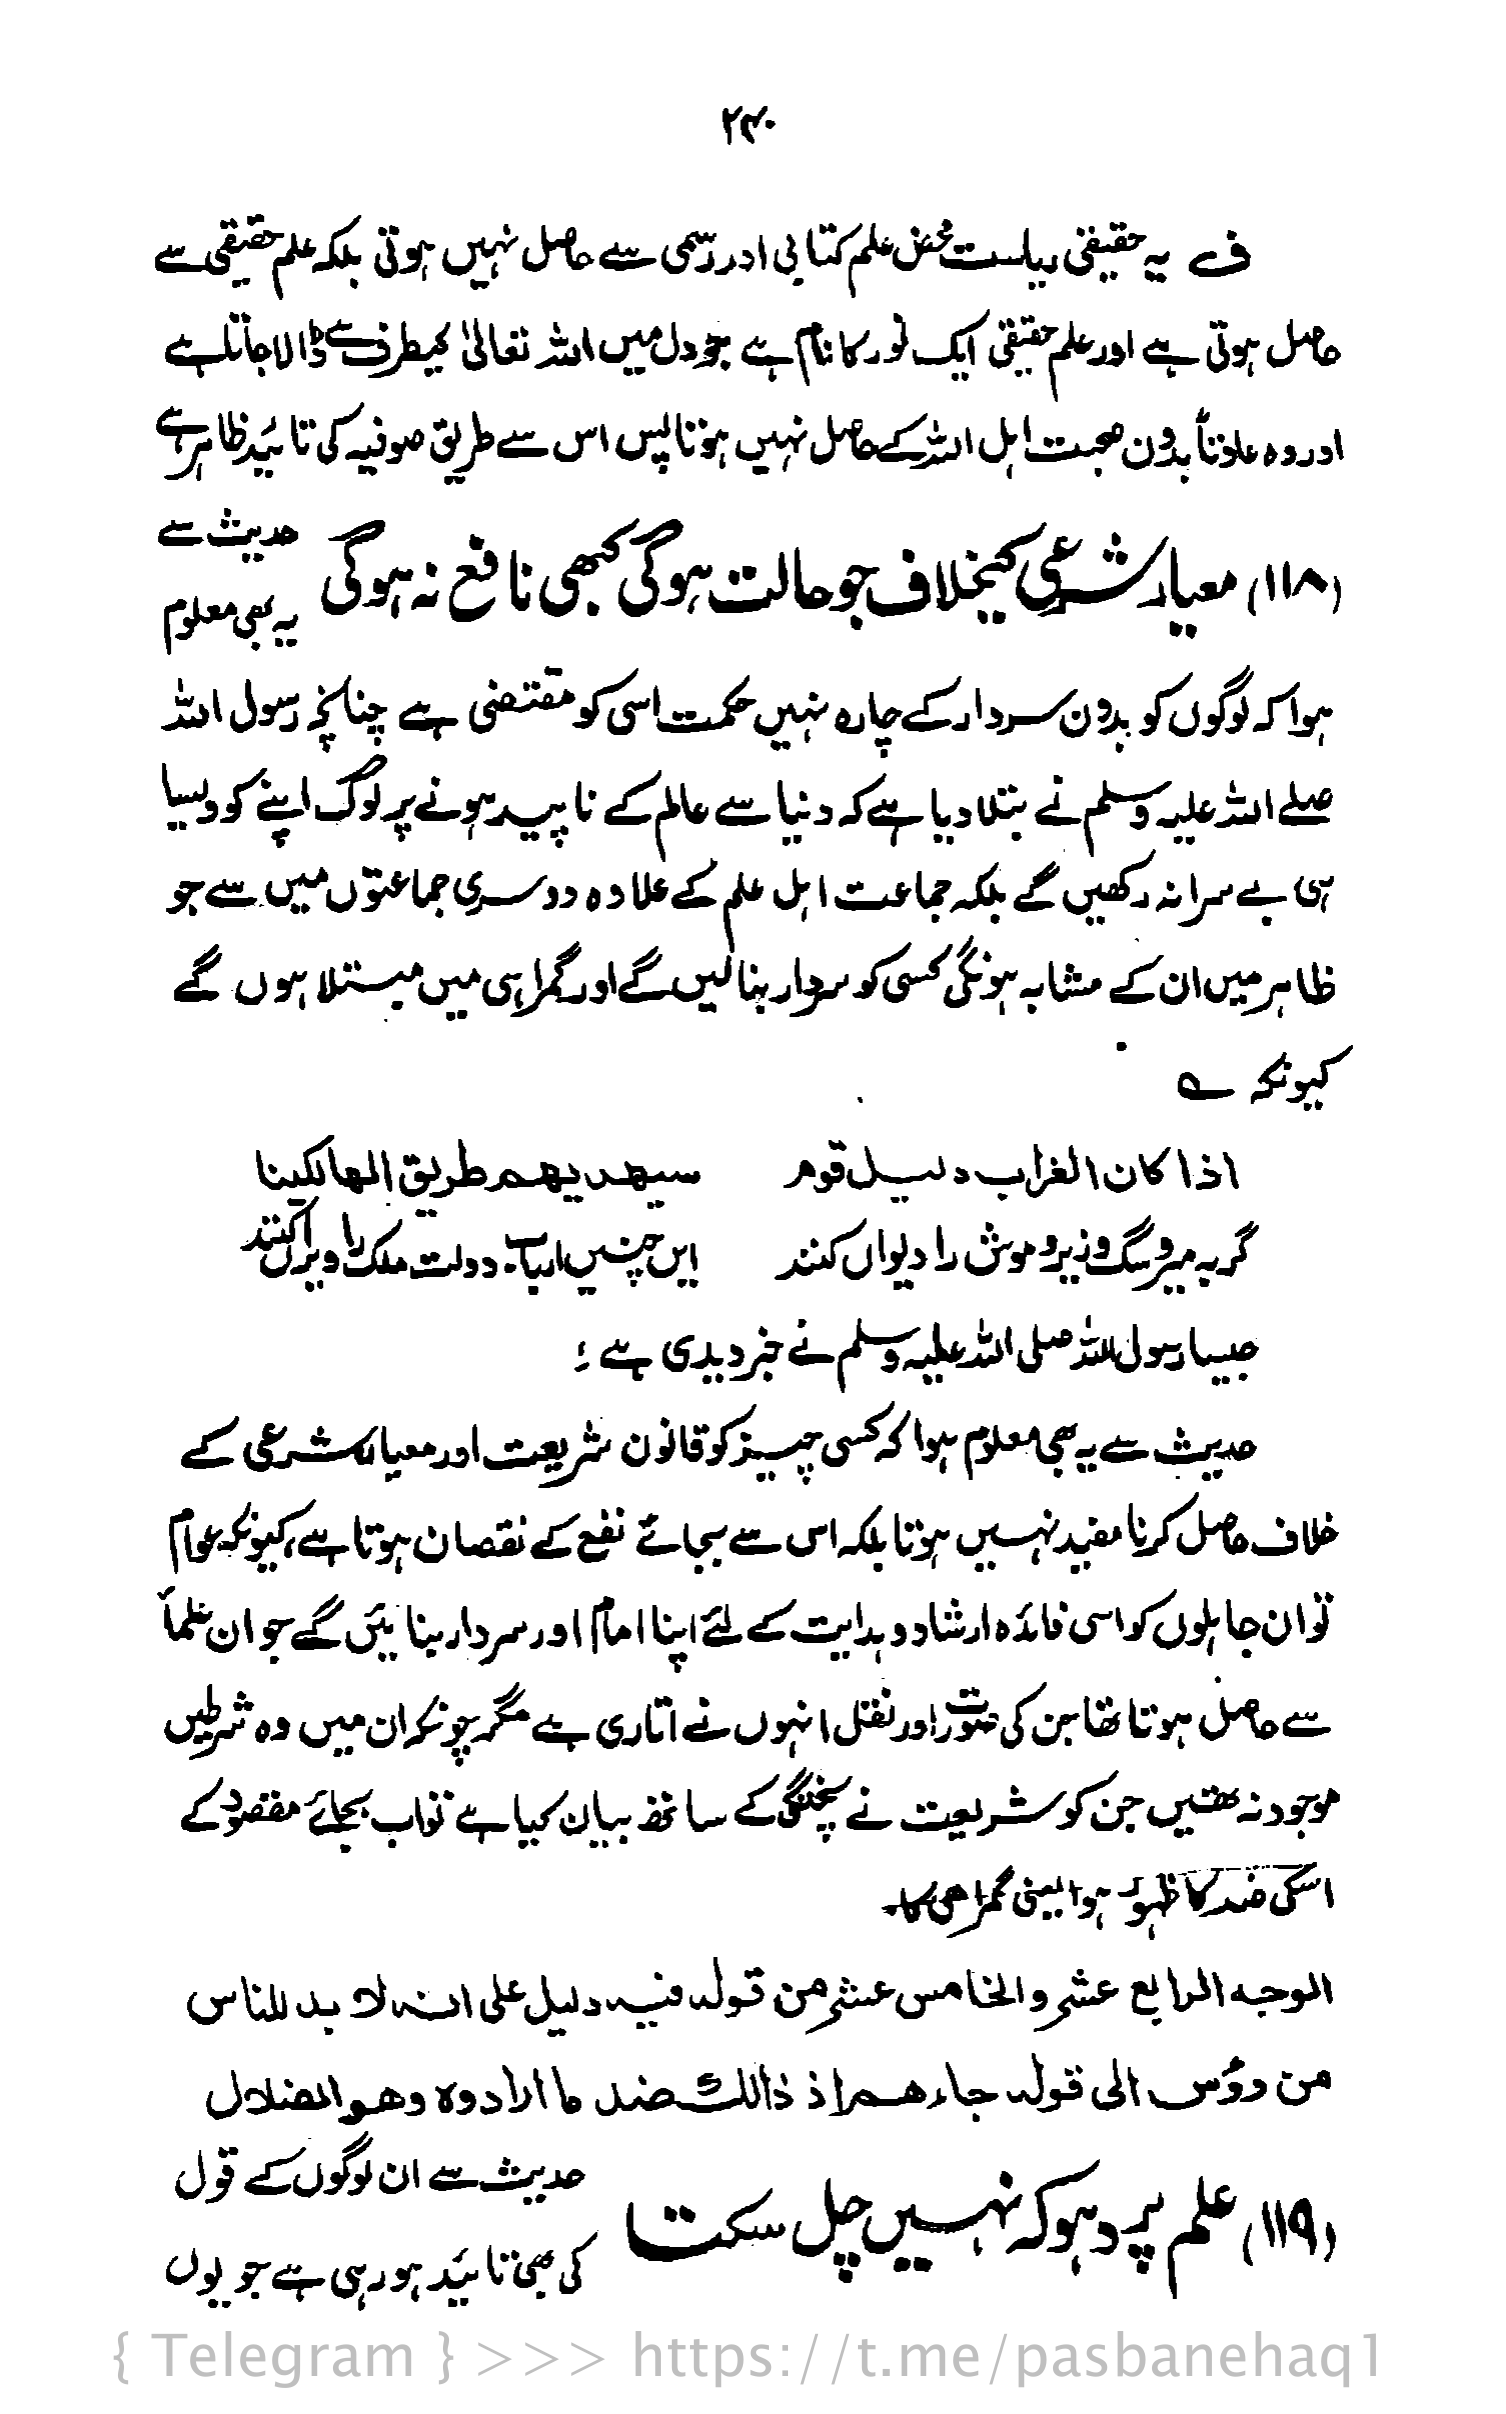 ۲۴۰
ف یہ حقیقی ریاست محض علم کتابی اور رسمی سے حاصل نہیں ہوتی بلکہ علم حقیقی سے
حاصل ہوتی ہے اور علم حقیقی ایک نور کا نام ہے جو دل میں اللہ تعالیٰ کیطرف سے ڈالا جاتا ہے
اور وہ عادتاً بدون صحبت اہل اللہ کے حاصل نہیں ہوتا پس اس سے طریق صوفیہ کی تائید ظاہر ہے
(۱۱۸) معیار شرعی کیخلاف جو حالت ہوگی کبھی نافع نہ ہوگی
حدیث سے
یہ بھی معلوم
ہوا کہ لوگوں کو بدون سردار کے چارہ نہیں حکمت اسی کو مقتضی ہے چنانچہ رسول اللہ
صلے اللہ علیہ وسلم نے بتلا دیا ہے کہ دنیا سے عالم کے ناپید ہونے پر لوگ اپنے کو ویسیا
ہی بے سرا نہ رکھیں گے بلکہ جماعت اہل علم کے علاوہ دوسری جماعتوں میں سے جو
ظاہر میں ان کے مشابہ ہونگی کسی کو سردار بنالیں گے اور گمراہی میں مبتلا ہوں گے
کیونکہ ے
اذا کان الغراب دلیل قوم سیھدیھم طریق الھالکینا
گربہ میر و سگ وزیر و موش را دیواں کنند ایں چنیں ارباب دولت ملک را ویراں کنند
جیسا رسول اللہ صلی اللہ علیہ وسلم نے خبر دیدی ہے ؛
حدیث سے یہ بھی معلوم ہوا کہ کسی چیز کو قانون شریعت اور معیار شرعی کے
خلاف حاصل کرنا مفید نہیں ہوتا بلکہ اس سے بجائے نفع کے نقصان ہوتا ہے، کیونکہ عوام
تو ان جاہلوں کو اسی فائدہ ارشاد و ہدایت کے لئے اپنا امام اور سردار بنائیں گے جو ان علمأ
سے حاصل ہوتا تھا جن کی صورت اور نقل انہوں نے اتاری ہے مگر چونکہ ان میں وہ شرطیں
موجود نہ تھیں جن کو شریعت نے پختگی کے ساتھ بیان کیا ہے تو اب بجائے مقصود کے
اسکی ضد کا ظہور ہوا یعنی گمراھی کا۔
الوجہ الرابع عشر والخامس عشر من قولہ فیہ دلیل علی انہ لا بد للناس
من رؤس الی قولہ جاءھم اذ ذالک ضد ما ارادوہ وھو الضلال
(۱۱۹) علم پر دہوکہ نہیں چل سکتا
حدیث سے ان لوگوں کے قول
کی بھی تائید ہو رہی ہے جو یوں
{ Telegram } >>> https://t.me/pasbanehaq1